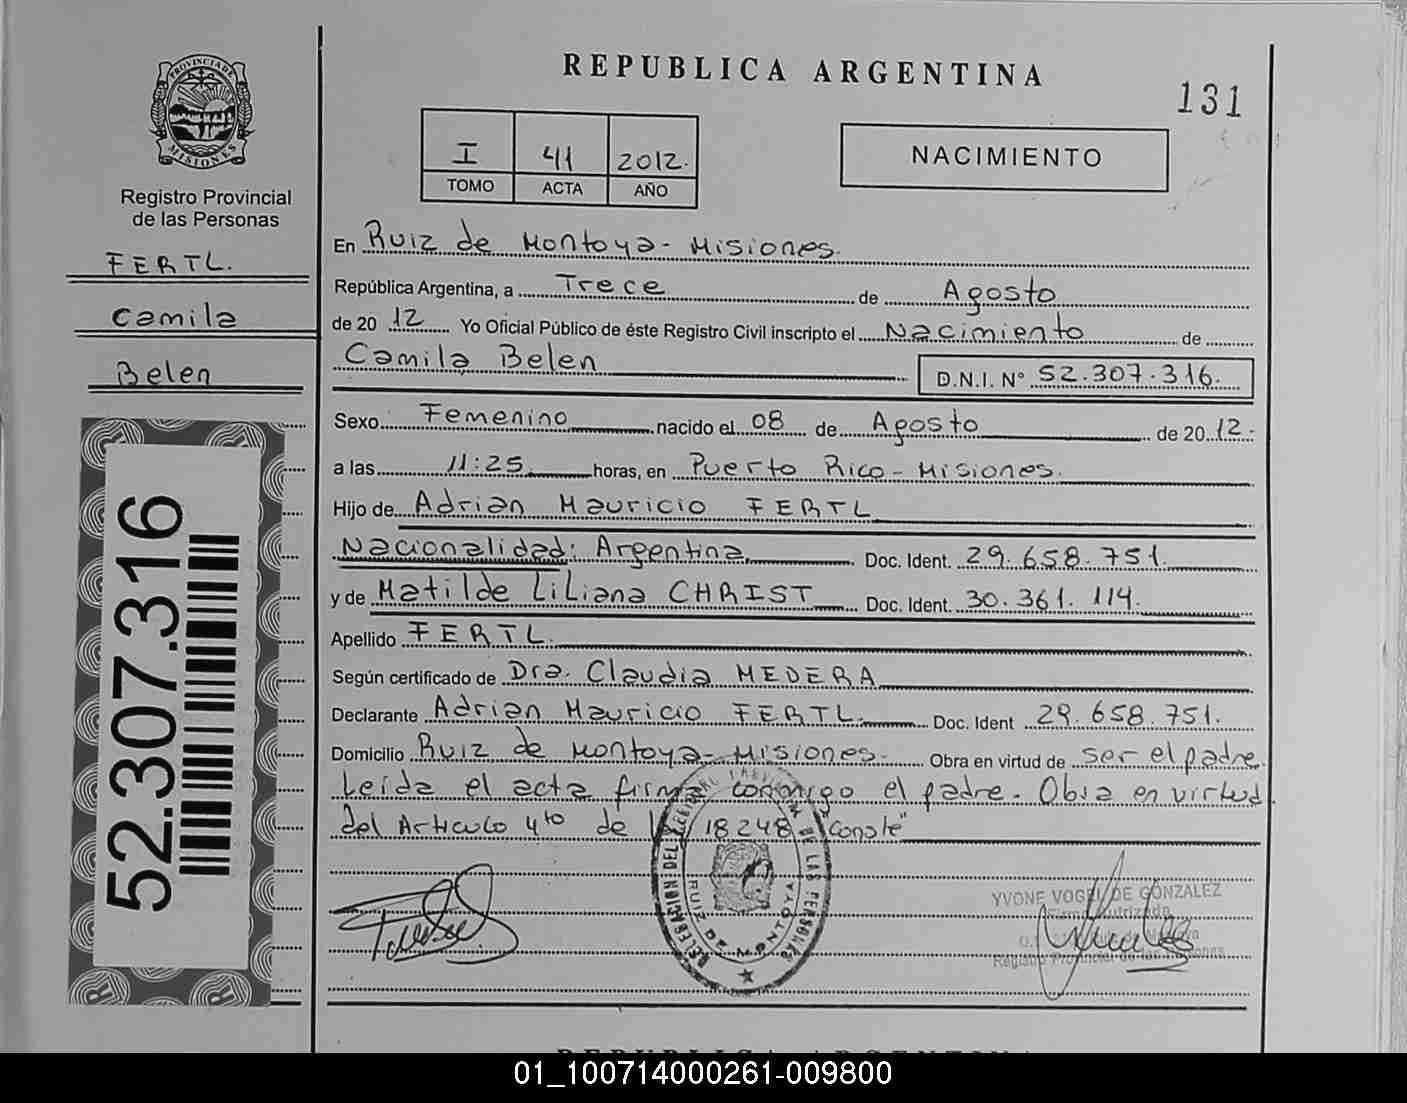 REPUBLICA ARGENTINA
131
PROVINCIA DE
MISIONES
Registro Provincial
de las Personas
FERTL.
Camila
Belen
52.307.316
I 41 2012.
TOMO ACTA AÑO
NACIMIENTO
En Ruiz de Montoya - Misiones.
República Argentina, a Trece de Agosto
de 20 12 Yo Oficial Público de éste Registro Civil inscripto el Nacimiento de
Camila Belen D.N.I. N° 52.307.316.
Sexo Femenino nacido el 08 de Agosto de 20 12.
a las 11:25 horas, en Puerto Rico - Misiones.
Hijo de Adrian Mauricio FERTL
Nacionalidad: Argentina Doc. Ident. 29.658.751.
y de Matilde Liliana CHRIST Doc. Ident. 30.361.114.
Apellido FERTL.
Según certificado de Dra. Claudia MEDERA
Declarante Adrian Mauricio FERTL. Doc. Ident 29.658.751.
Domicilio Ruiz de Montoya - Misiones. Obra en virtud de ser el padre
Leída el acta firma conmigo el padre. Obra en virtud
del Articulo 4to de 18248 "Conste"
DELEGACION DEL REGISTRO PROVINCIAL DE LAS PERSONAS
RUIZ DE MONTOYA
YVONE VOGEL DE GONZALEZ
Firma Autorizada
Registro Provincial de las Personas
REPUBLICA ARGENTINA
01_100714000261-009800